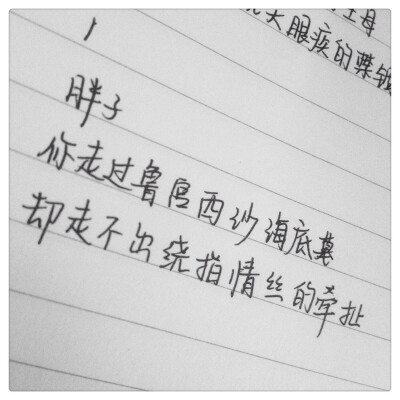 母
眼疾的
胖子
你走过鲁宫西沙海底墓
却走不出绕指情丝的牵扯